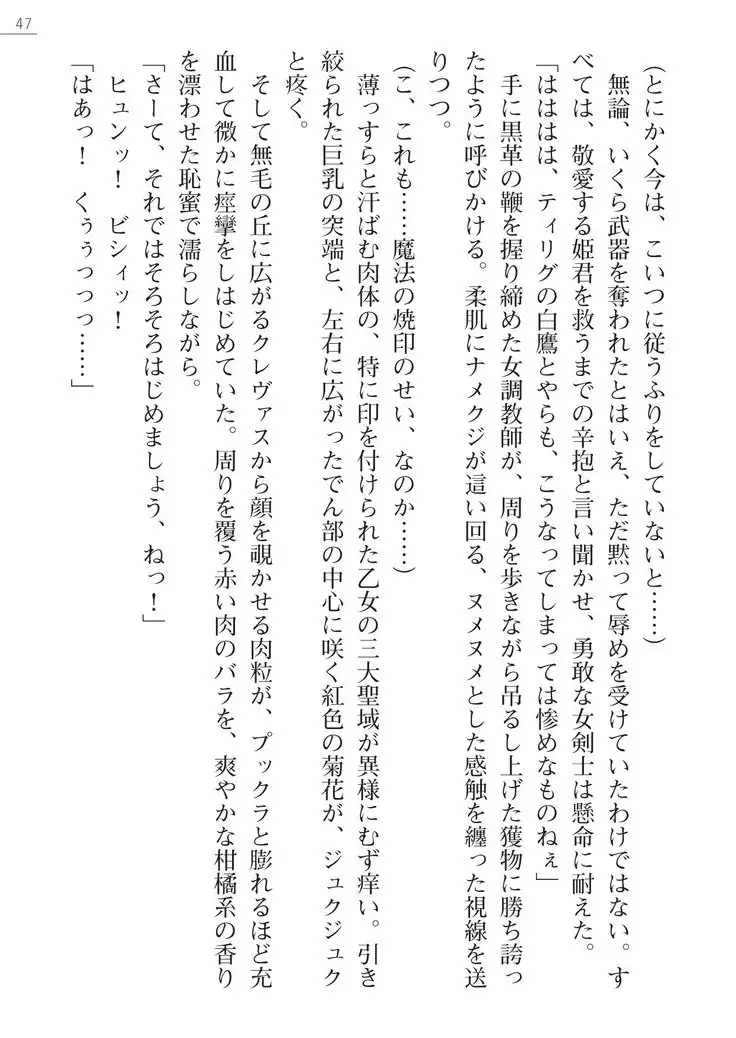 47
(とにかく今は、こいつに従うふりをしていないと……)
無論、いくら武器を奪われたとはいえ、ただ黙って辱めを受けていたわけではない。す
べては、敬愛する姫君を救うまでの辛抱と言い聞かせ、勇敢な女剣士は懸命に耐えた。
「はははは、ティリグの白鷹とやらも、こうなってしまっては惨めなものねぇ」
手に黒革の鞭を握り締めた女調教師が、周りを歩きながら吊るし上げた獲物に勝ち誇っ
たように呼びかける。柔肌にナメクジが這い回る、ヌメヌメとした感触を纏った視線を送
りつつ。
(こ、これも……魔法の焼印のせい、なのか……)
薄っすらと汗ばむ肉体の、特に印を付けられた乙女の三大聖域が異様にむず痒い。引き
絞られた巨乳の突端と、左右に広がったでん部の中心に咲く紅色の菊花が、ジュクジュク
と疼く。
そして無毛の丘に広がるクレヴァスから顔を覗かせる肉粒が、プックラと膨れるほど充
血して微かに痙攣をしはじめていた。周りを覆う赤い肉のバラを、爽やかな柑橘系の香り
を漂わせた恥蜜で濡らしながら。
「さーて、それではそろそろはじめましょう、ねっ！」
ヒュンッ！　ビシィッ！
「はあっ！　くぅぅっっっ……」